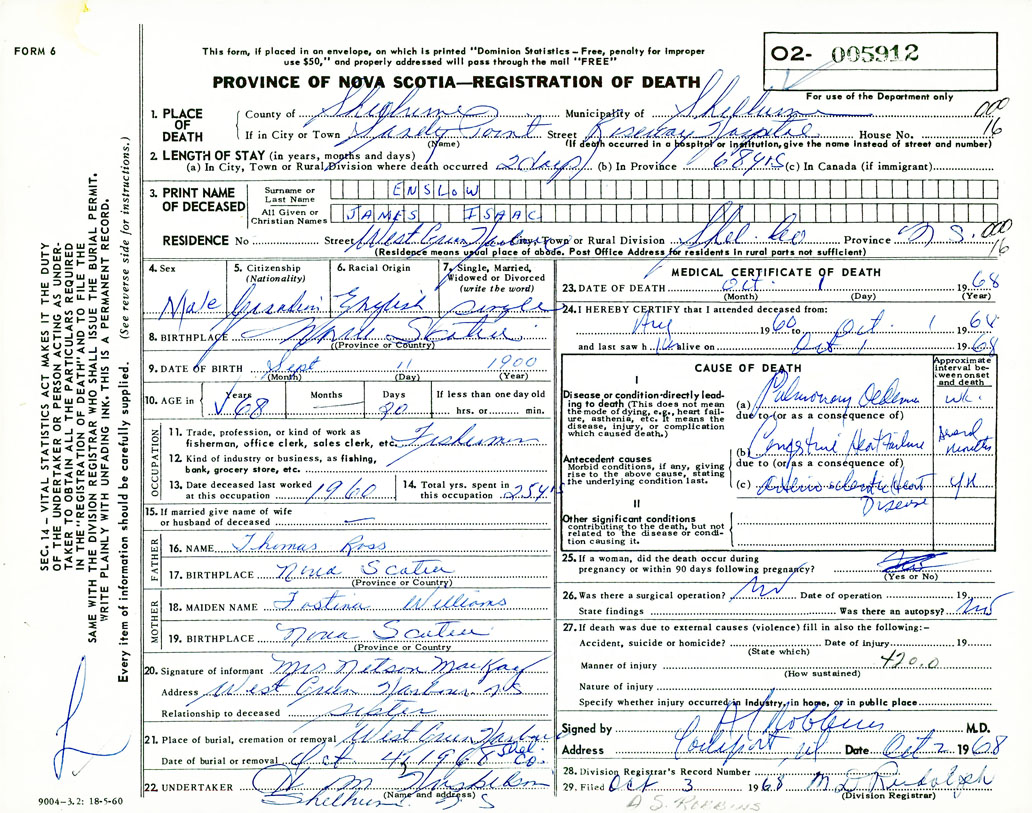 FORM 6
This form, if placed in an envelope, on which is printed "Dominion Statistics – Free, penalty for improper
use $50," and properly addressed will pass through the mail "FREE"
O2- 005912
For use of the Department only
PROVINCE OF NOVA SCOTIA—REGISTRATION OF DEATH
1. PLACE OF DEATH
County of Shelburne Municipality of Shelburne 000
If in City or Town Sandy Point Street Roseway Hospital House No. 16
(Name) (If death occurred in a hospital or institution, give the name instead of street and number)
2. LENGTH OF STAY (in years, months and days)
(a) In City, Town or Rural Division where death occurred 2 days (b) In Province 68 yrs (c) In Canada (if immigrant)
3. PRINT NAME OF DECEASED
Surname or Last Name ENSLOW
All Given or Christian Names JAMES ISAAC
RESIDENCE No Street West Green Harbour City, Town or Rural Division Shel. Co Province N S. 000
(Residence means usual place of abode. Post Office Address for residents in rural parts not sufficient) 16
4. Sex Male
5. Citizenship (Nationality) Canadian
6. Racial Origin English
7. Single, Married, Widowed or Divorced (write the word) Single
8. BIRTHPLACE Nova Scotia
(Province or Country)
9. DATE OF BIRTH Sept 11 1900
(Month) (Day) (Year)
10. AGE in Years 68 Months Days 20 If less than one day old
hrs. or min.
OCCUPATION
11. Trade, profession, or kind of work as
fisherman, office clerk, sales clerk, etc. Fisherman
12. Kind of industry or business, as fishing,
bank, grocery store, etc.
13. Date deceased last worked
at this occupation 1960
14. Total yrs. spent in
this occupation 25 yrs
15. If married give name of wife
or husband of deceased —
FATHER
16. NAME Thomas Ross
17. BIRTHPLACE Nova Scotia
(Province or Country)
MOTHER
18. MAIDEN NAME Williams
19. BIRTHPLACE Nova Scotia
(Province or Country)
20. Signature of informant Mrs Nelson MacKay
Address West Green Harbour NS
Relationship to deceased sister
21. Place of burial, cremation or removal West Green Harbour
Shel. Co.
Date of burial or removal Oct 4, 1968
22. UNDERTAKER H M
(Name and address)
Shelburne N S
9004–3.2: 18-5-60
MEDICAL CERTIFICATE OF DEATH
23. DATE OF DEATH Oct. 1 1968
(Month) (Day) (Year)
24. I HEREBY CERTIFY that I attended deceased from:
Aug 1960 to Oct. 1 1968
and last saw him alive on Oct 1 1968
CAUSE OF DEATH
Approximate interval between onset and death
I
Disease or condition directly leading to death (This does not mean the mode of dying, e.g., heart failure, asthma, etc. It means the disease, injury, or complication which caused death.)
(a) Pulmonary Oedema wk.
due to (or as a consequence of)
Antecedent causes
Morbid conditions, if any, giving rise to the above cause, stating the underlying condition last.
(b) Congestive Heart Failure
due to (or as a consequence of)
(c) Arteriosclerotic Heart
Disease
II
Other significant conditions
contributing to the death, but not related to the disease or condition causing it.
25. If a woman, did the death occur during
pregnancy or within 90 days following pregnancy?
(Yes or No)
26. Was there a surgical operation? No Date of operation 19
State findings Was there an autopsy? No
27. If death was due to external causes (violence) fill in also the following:–
Accident, suicide or homicide? Date of injury 19
(State which)
Manner of injury 420.0
(How sustained)
Nature of injury
Specify whether injury occurred in industry, in home, or in public place
Signed by A S Robbins M.D.
Address Lockeport, NS Date Oct 2 1968
28. Division Registrar's Record Number
29. Filed Oct 3 1968 M D Rudolph
(Division Registrar)
A S. ROBBINS
SEC. 14 – VITAL STATISTICS ACT MAKES IT THE DUTY
OF THE UNDERTAKER OR PERSON ACTING AS UNDER-
TAKER TO OBTAIN ALL THE PARTICULARS REQUIRED
IN THE "REGISTRATION OF DEATH" AND TO FILE THE
SAME WITH THE DIVISION REGISTRAR WHO SHALL ISSUE THE BURIAL PERMIT.
WRITE PLAINLY WITH UNFADING INK. THIS IS A PERMANENT RECORD.
Every item of information should be carefully supplied. (See reverse side for instructions.)